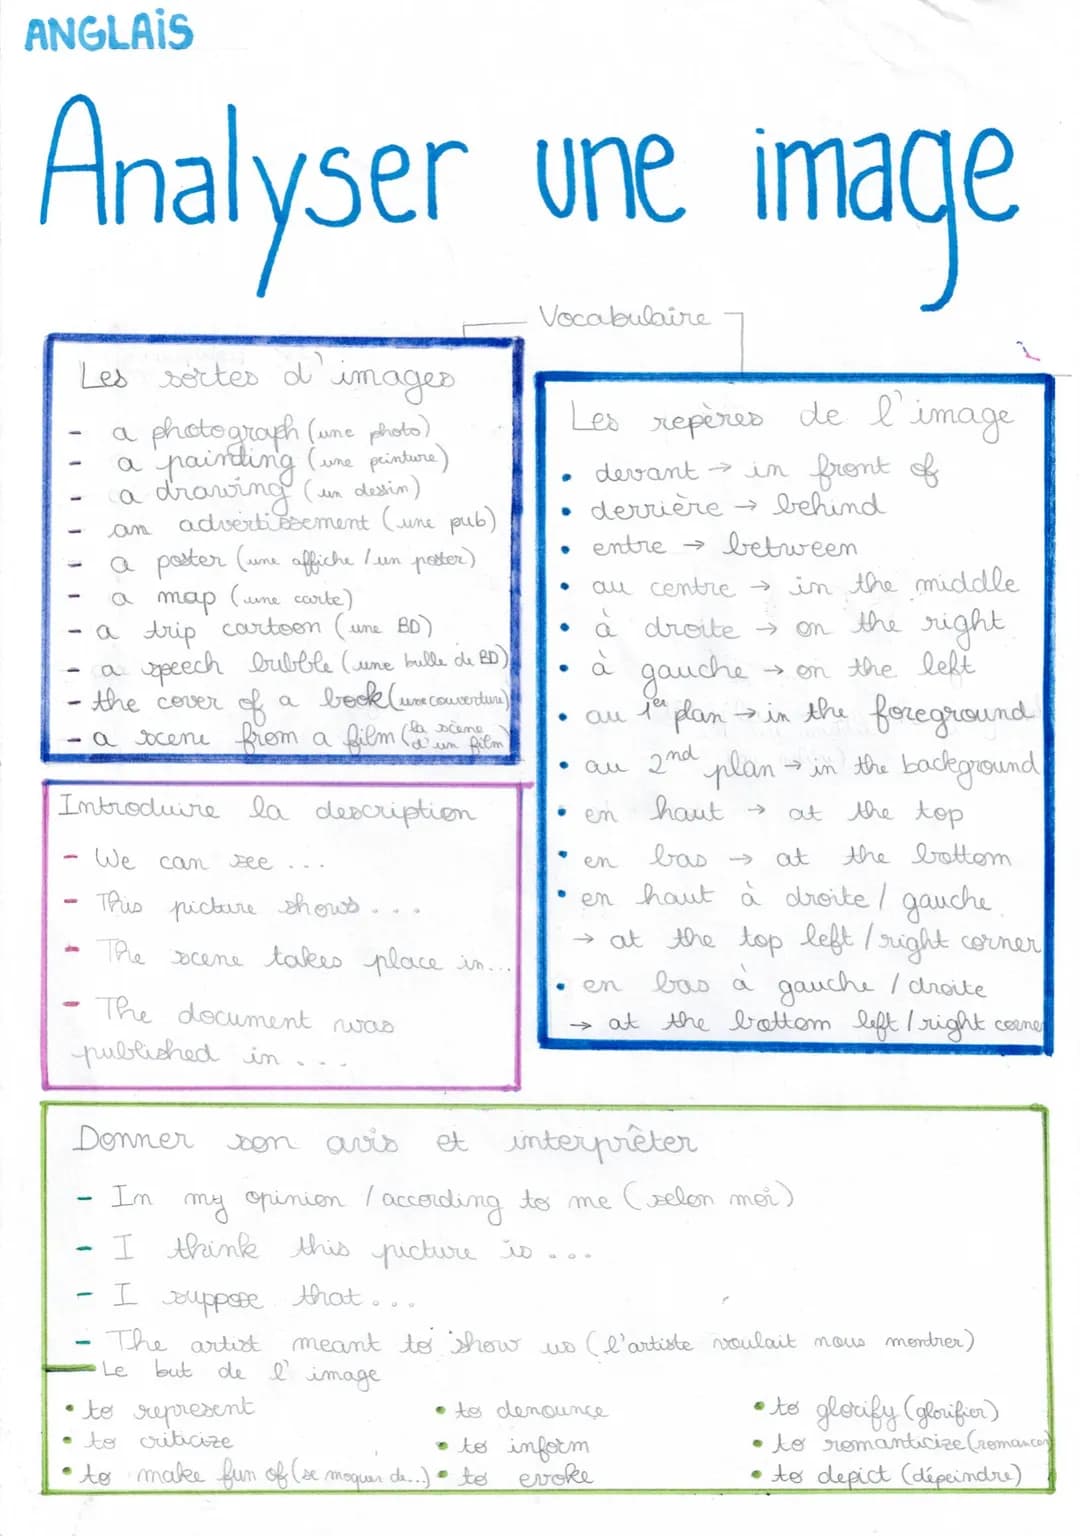 ANGLAiS
Analyser une image
Vocabulaire
Les sortes d'images
- a photograph (une photo)
- a painting (une peinture)
- a drawing (un dessin)
- an advertissement (une pub)
- a poster (une affiche / un poster)
- a map (une carte)
- a trip cartoon (une BD)
- a speech bubble (une bulle de BD)
- the cover of a book (une couverture)
- a scene from a film (la scène d'un film)
Les repères de l'image
• devant → in front of
• derrière → behind
• entre → between
• au centre → in the middle
• à droite → on the right
• à gauche → on the left
• au 1er plan → in the foreground
• au 2nd plan → in the background
• en haut → at the top
• en bas → at the bottom
• en haut à droite / gauche
→ at the top left / right corner
• en bas à gauche / droite
→ at the bottom left / right corner
Introduire la description
- We can see ...
- This picture shows ...
- The scene takes place in...
- The document was
published in ...
Donner son avis et interprêter
- In my opinion / according to me (selon moi)
- I think this picture is ...
- I suppose that ...
- The artist meant to show us (l'artiste voulait nous montrer)
Le but de l'image
• to represent
• to criticize
• to make fun of (se moquer de...)
• to denounce
• to inform
• to evoke
• to glorify (glorifier)
• to romanticize (romancer)
• to depict (dépeindre)